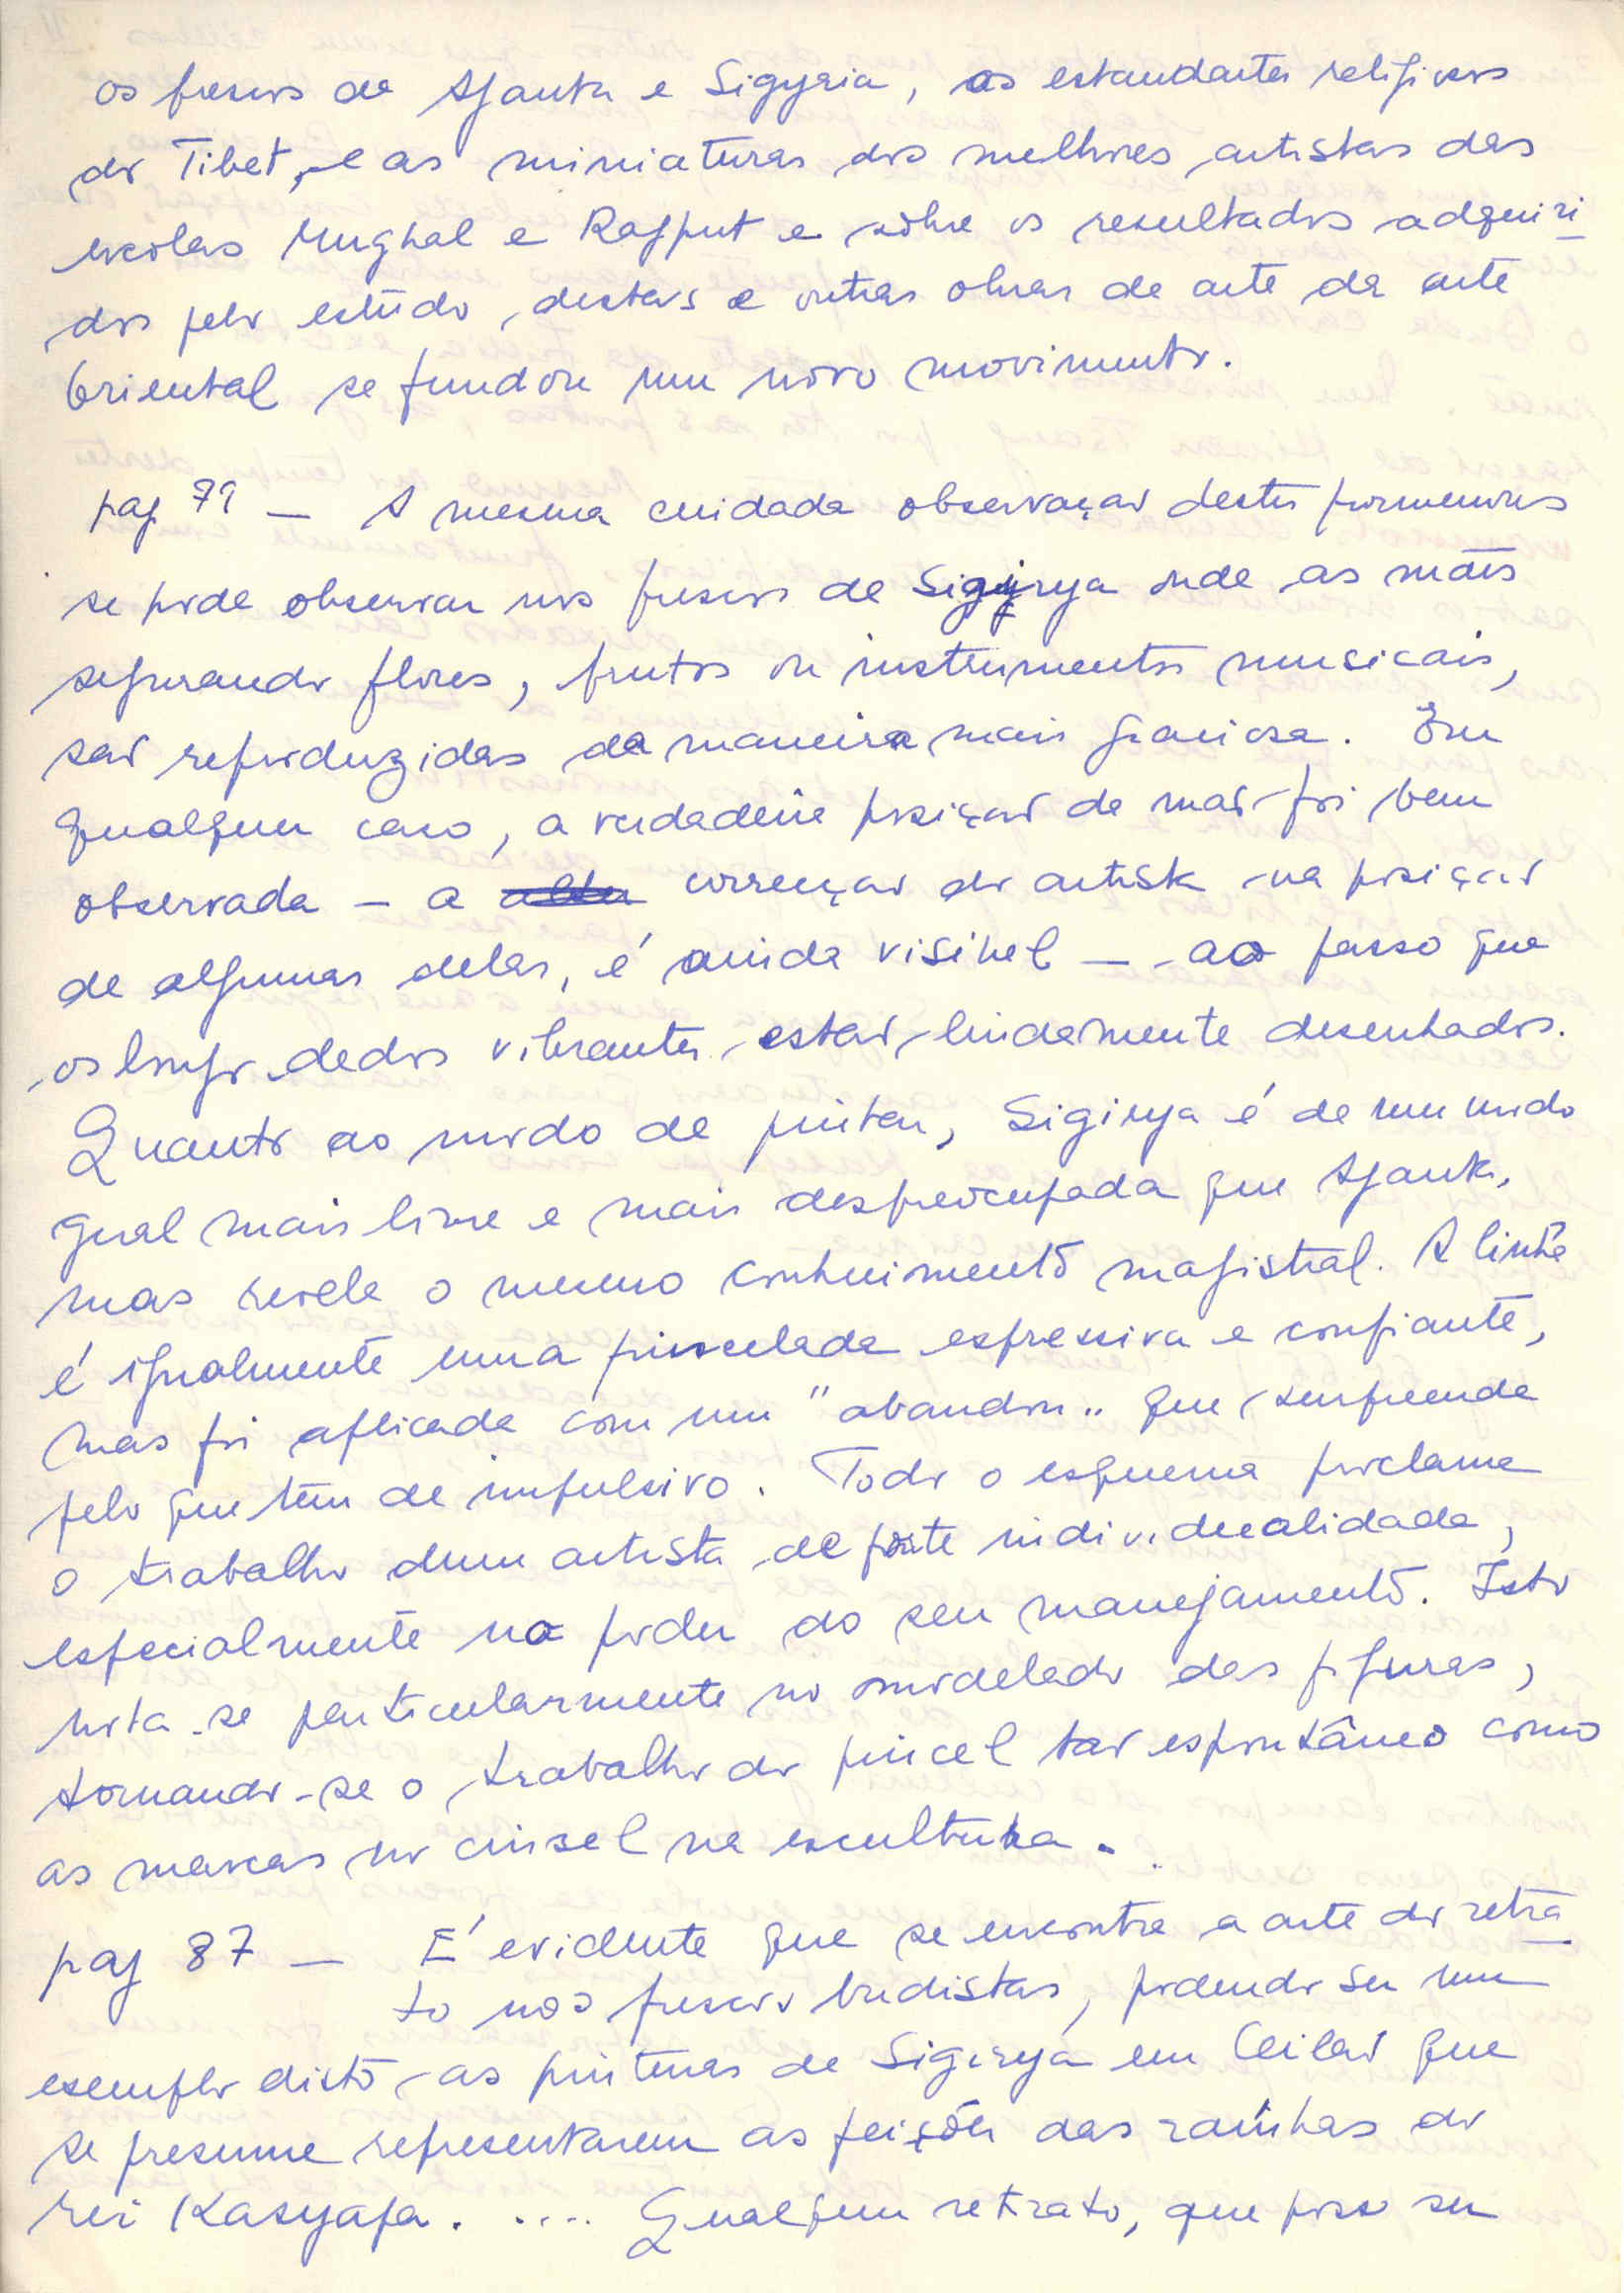 os frescos de Ajanta e Sigyria, os estandartes religiosos
do Tibet, e as miniaturas dos melhores artistas das
escolas Mughal e Rajput e sôbre os resultados adquiri
dos pelo estudo, destas e outras obras de arte da arte
Oriental se fundou um novo movimento.
pag 79 — A mesma cuidada observação destes pormenores
se pode observar nos frescos de Sigirya onde as mãos
segurando flores, frutos ou instrumentos musicais,
são reproduzidas da maneira mais graciosa. Em
qualquer caso, a verdadeira posição da mão foi bem
observada — a correcção do artista na posição
de algumas delas, é ainda visivel — ao passo que
os longos dedos vibrantes estão lindamente desenhados.
Quanto ao modo de pintar, Sigirya é de um modo
geral mais livre e mais despreocupada que Ajanta,
mas revela o mesmo conhecimento magistral. A linha
é igualmente uma pincelada expressiva e confiante,
mas foi aplicada com um "abandon" que surpreende
pelo que tem de impulsivo. Todo o esquema proclama
o trabalho dum artista de forte individualidade,
especialmente no poder do seu manejamento. Isto
nota-se particularmente no modelado das figuras,
tornando-se o trabalho do pincel tão espontâneo como
as marcas no cinzel na escultura.
pag 87 — É evidente que se encontra a arte do retra
to nos frescos budistas, podendo ser um
exemplo disto as pinturas de Sigirya em Ceilão que
se presume representarem as feições das raínhas do
rei Kasyapa. .... Qualquer retrato, que possa ser